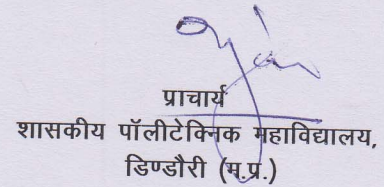 प्राचार्य
शासकीय पॉलीटेक्निक महाविद्यालय,
डिण्डौरी (म.प्र.)